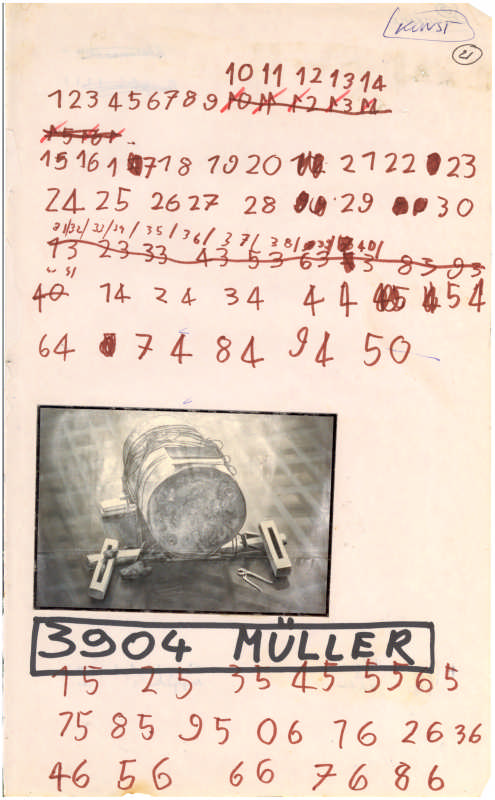 KUNST
21
10 11 12 13 14
1 2 3 4 5 6 7 8 9 10 11 12 13 14
15 16
15 16 1 7 18 19 20 21 22 23
24 25 26 27 28 29 30
31/32/33/34/35/36/37/38/39/40/
13 23 33 43 53 63 3 83 93
40 14 24 34 4 4 5 4
64 7 4 84 94 50
3904 MÜLLER
15 25 35 45 55 65
75 85 95 06 76 26 36
46 56 66 76 86